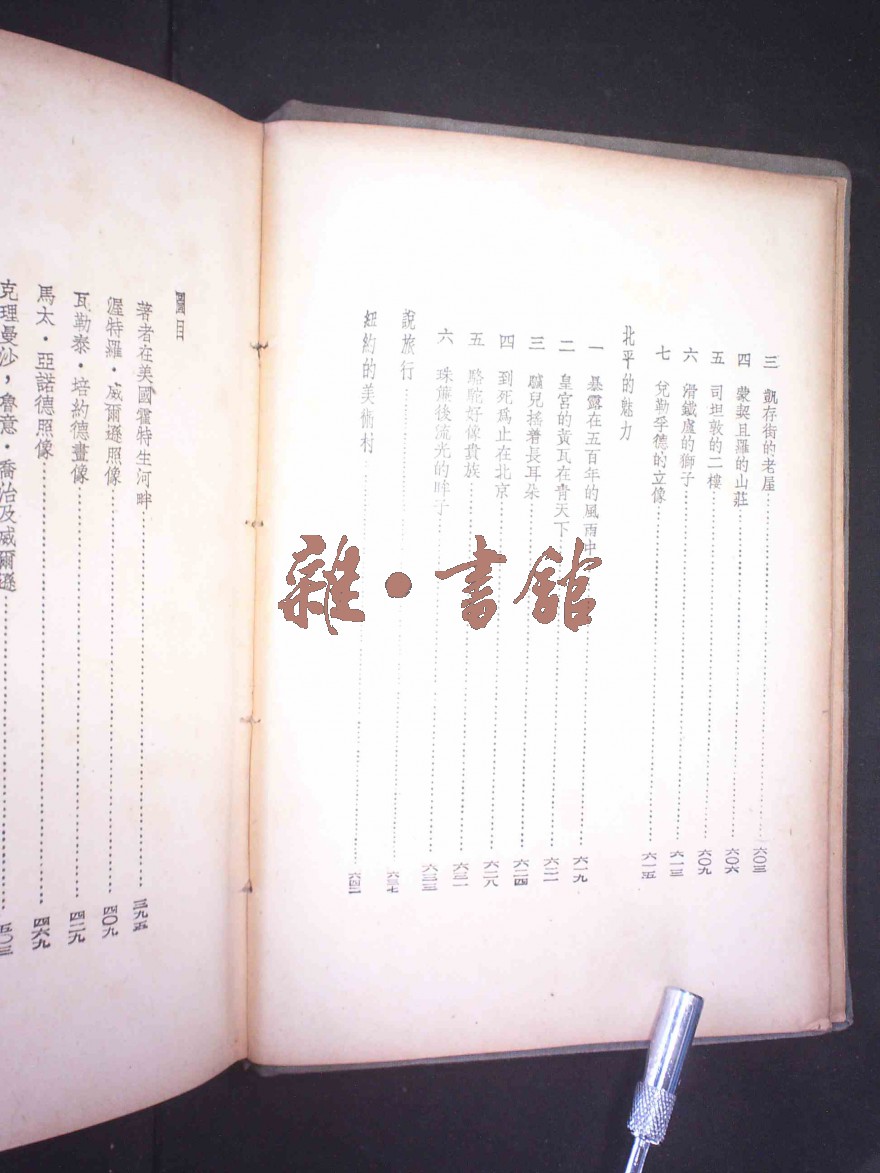 三　凱存街的老屋……六〇三
四　蒙契且羅的山莊……六〇六
五　司坦敦的二樓……六〇九
六　滑鐵盧的獅子……六一三
七　兌勒孚德的立像……六一五
北平的魅力
一　暴露在五百年的風雨中……六一九
二　皇宮的黃瓦在青天下……六二一
三　驢兒搖着長耳朵……六二四
四　到死爲止在北京……六二八
五　駱駝好像貴族……六三一
六　珠簾後流光的眸子……六三三
說旅行……六三七
紐約的美術村……六四二
圖目
著者在美國霍特生河畔……三九五
渥特羅・威爾遜照像……四〇九
瓦勒泰・培約德畫像……四二九
馬太・亞諾德照像……四六九
克理曼沙，魯意・喬治及威爾遜……五〇三
雜・書館